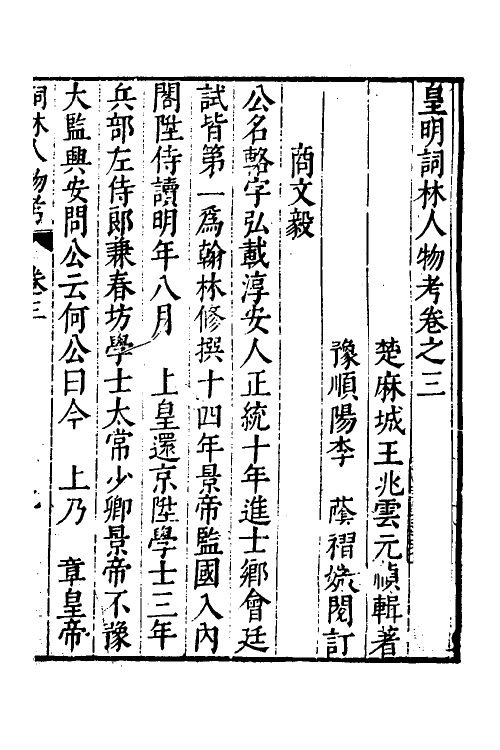 皇明詞林人物考卷之三
楚麻城王兆雲元禎輯著
豫順陽李　蔭襵嫓閱訂
商文毅
公名輅字弘載淳安人正統十年進士鄉會廷
試皆第一爲翰林修撰十四年景帝監國入內
閣陞侍讀明年八月　上皇還京陞學士三年
兵部左侍郎兼春坊學士太常少卿景帝不豫
大監興安問公云何公曰今　上乃　章皇帝
詞林人物考　卷三